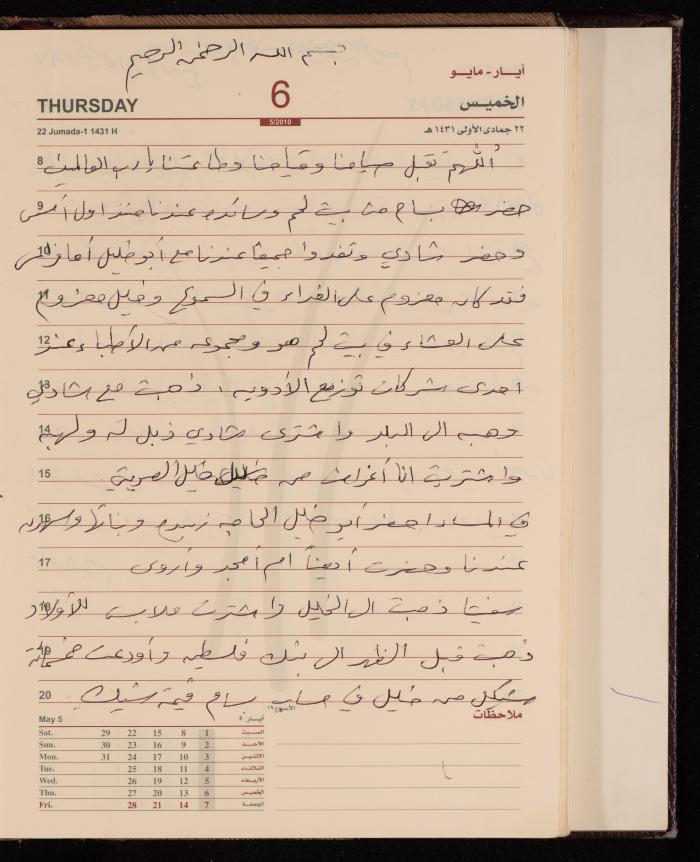 بسم الله الرحمن الرحيم
أيار - مايو
THURSDAY 6 الخميس
5/2010
22 Jumada-1 1431 H ٢٢ جمادى الأولى ١٤٣١ هـ
8 اللهم تقبل صيامنا وقيامنا وطاعتنا يا رب العالمين
9 حضر بسام من بيت لحم وسائده عندنا منذ اول أمس
10 وحضر شادي وتغدوا جميعاً عندنا مع أبو خليل أما فراس
11 فقد كان معزوم على الغداء في السموع وخليل معزوم
12 على العشاء في بيت لحم هو ومجموعه من الأطباء عند
13 احدى شركات توزيع الأدويه، ذهبت مع شادي
14 وهبه الى البلد واشترى شادي ذبل له ولهبه
15 واشتريت انا أغراض من خليل
16 في المساء احضر أبو خليل الحاجه زبيده وبناتها وسهرن
17 عندنا وحضرت أيضاً ام أمجد وأروى
18 ذهبت الى الخليل واشترت ملابس للأولاد
19 ذهبت قبل الظهر الى بنك فلسطين وأودعت خمسمائة
20 شيكل من خليل في حساب بسام قيمة شيك
May 5 أيار ٥ الأسبوع ١٩ ملاحظات
Sat. 29 22 15 8 1 السبت
Sun. 30 23 16 9 2 الأحد
Mon. 31 24 17 10 3 الاثنين
Tue. 25 18 11 4 الثلاثاء
Wed. 26 19 12 5 الأربعاء
Thu. 27 20 13 6 الخميس
Fri. 28 21 14 7 الجمعة